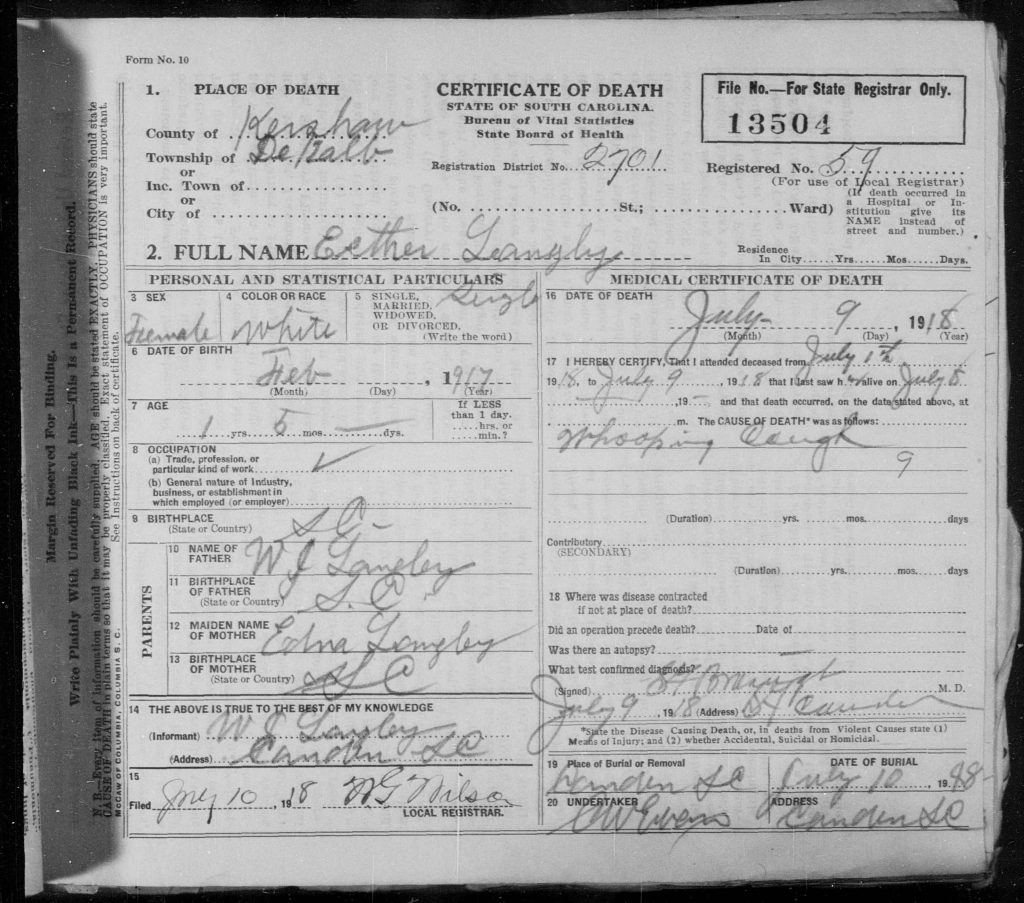 Form No. 10
1. PLACE OF DEATH
County of Kershaw
Township of DeKalb
or
Inc. Town of
or
City of
CERTIFICATE OF DEATH
STATE OF SOUTH CAROLINA.
Bureau of Vital Statistics
State Board of Health
Registration District No. 2701
(No. St.; Ward)
File No.—For State Registrar Only.
13504
Registered No. 59
(For use of Local Registrar)
(If death occurred in
a Hospital or In-
stitution give its
NAME instead of
street and number.)
2. FULL NAME Esther Langley
Residence
In City Yrs. Mos. Days.
PERSONAL AND STATISTICAL PARTICULARS
3 SEX
Female
4 COLOR OR RACE
White
5 SINGLE,
MARRIED,
WIDOWED,
OR DIVORCED.
(Write the word)
Single
6 DATE OF BIRTH
Feb , 1917
(Month) (Day) (Year)
7 AGE
1 yrs. 5 mos. — dys.
If LESS
than 1 day.
hrs. or
min.?
8 OCCUPATION
(a) Trade, profession, or
particular kind of work
(b) General nature of Industry,
business, or establishment in
which employed (or employer)
9 BIRTHPLACE
(State or Country) S.C.
PARENTS
10 NAME OF
FATHER W J Langley
11 BIRTHPLACE
OF FATHER
(State or Country) S.C.
12 MAIDEN NAME
OF MOTHER Edna Langley
13 BIRTHPLACE
OF MOTHER
(State or Country) S C
14 THE ABOVE IS TRUE TO THE BEST OF MY KNOWLEDGE
(Informant) W J Langley
(Address) Camden SC
15
Filed July 10, 1918 W G Wilson
LOCAL REGISTRAR.
MEDICAL CERTIFICATE OF DEATH
16 DATE OF DEATH
July 9, 1918
(Month) (Day) (Year)
17 I HEREBY CERTIFY, That I attended deceased from July 1st
1918, to July 9, 1918 that I last saw h alive on July 8.
, 19 and that death occurred, on the date stated above, at
m. The CAUSE OF DEATH* was as follows:
Whooping Cough
9
(Duration) yrs. mos. days
Contributory
(SECONDARY)
(Duration) yrs. mos. days
18 Where was disease contracted
if not at place of death?
Did an operation precede death? Date of
Was there an autopsy?
What test confirmed diagnosis?
(Signed) M. D.
July 9, 1918 (Address) Camden
*State the Disease Causing Death, or, in deaths from Violent Causes state (1)
Means of Injury; and (2) whether Accidental, Suicidal or Homicidal.
19 Place of Burial or Removal
Camden SC
DATE OF BURIAL
July 10, 1918
20 UNDERTAKER
C W Evans
ADDRESS
Camden SC
Margin Reserved For Binding.
Write Plainly With Unfading Black Ink—This Is a Permanent Record.
N. B.—Every item of information should be carefully supplied. AGE should be stated EXACTLY. PHYSICIANS should state
CAUSE OF DEATH in plain terms so that it may be properly classified. Exact statement of OCCUPATION is very important.
See Instructions on back of certificate.
McCAW OF COLUMBIA, COLUMBIA S. C.